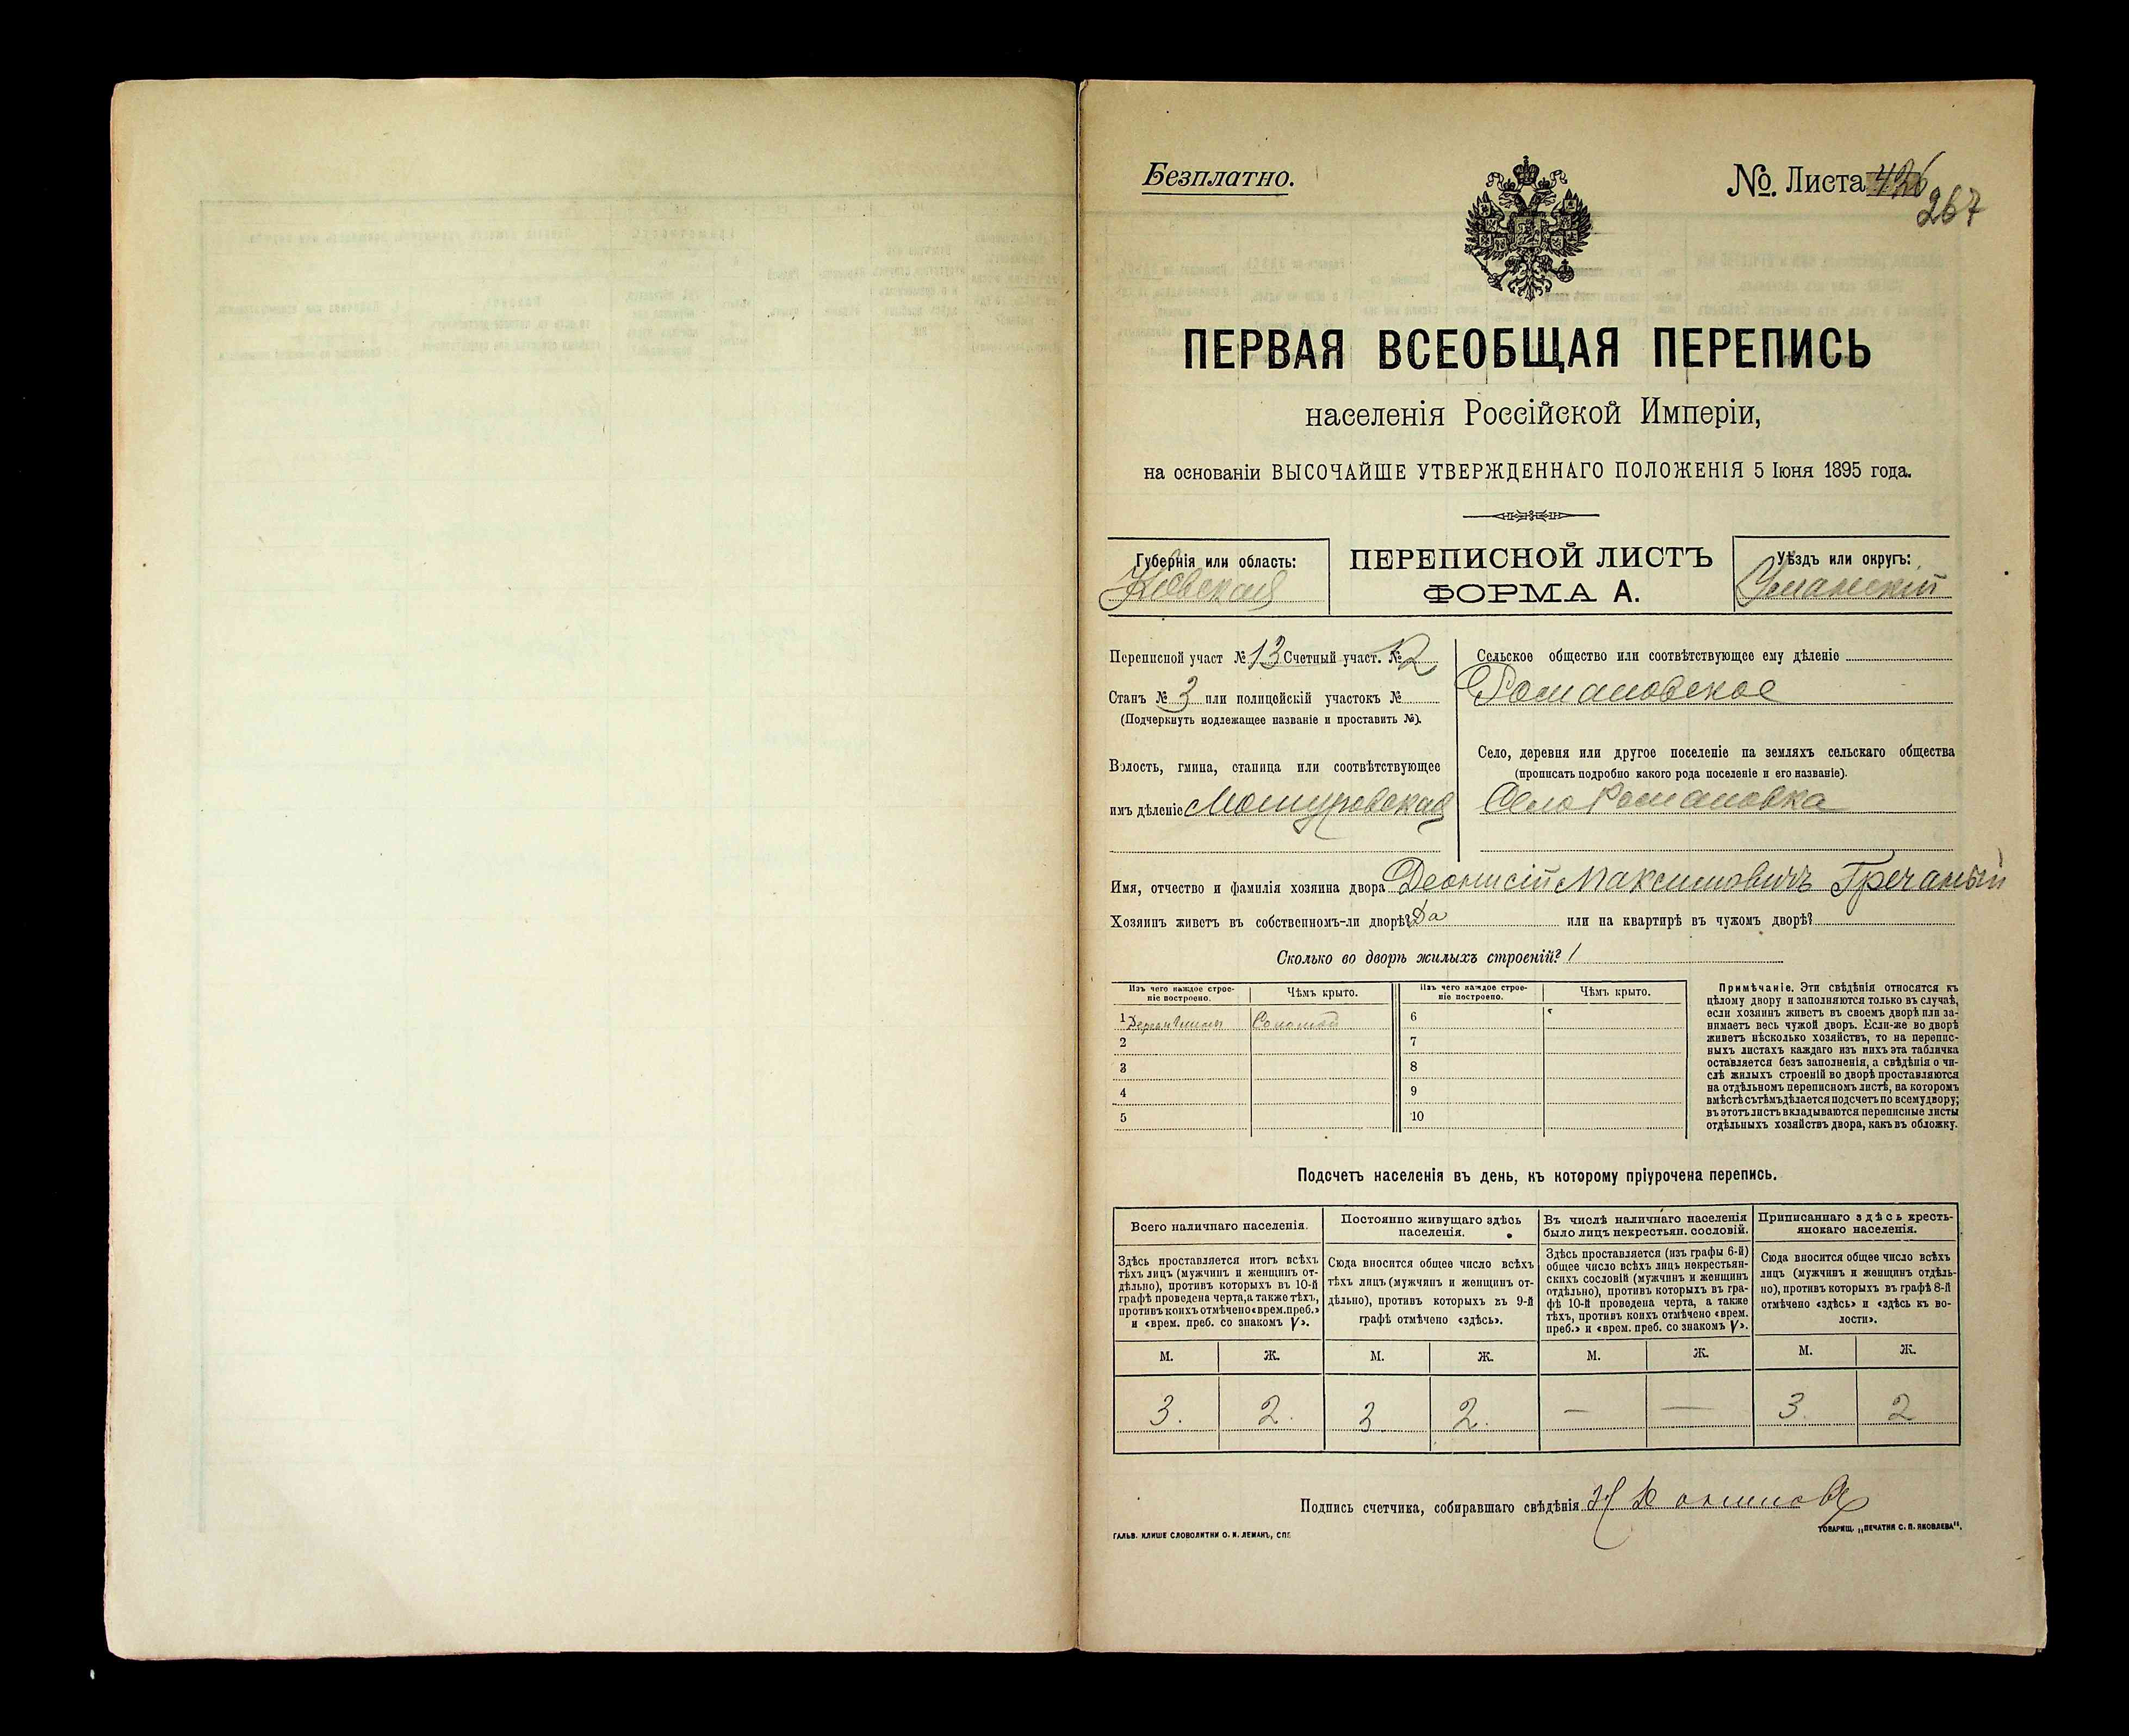 Безплатно.
№. Листа 426
267
ПЕРВАЯ ВСЕОБЩАЯ ПЕРЕПИСЬ
населенія Россійской Имперіи,
на основаніи ВЫСОЧАЙШЕ УТВЕРЖДЕННАГО ПОЛОЖЕНІЯ 5 Іюня 1895 года.
Губернія или область:
Кіевская
ПЕРЕПИСНОЙ ЛИСТЪ
ФОРМА А.
Уѣздъ или округъ:
Уманскій
Переписной участ № 13 Счетный участ. № 12
Станъ № 3 или полицейскій участокъ №
(Подчеркнуть подлежащее названіе и проставить №).
Волость, гмина, станица или соотвѣтствующее
имъ дѣленіе Мошуровская
Сельское общество или соотвѣтствующее ему дѣленіе
Романовское
Село, деревня или другое поселеніе на земляхъ сельскаго общества
(прописать подробно какого рода поселеніе и его названіе).
Село Романовка
Имя, отчество и фамилія хозяина двора Деонисій Максимовичъ Гречаный
Хозяинъ живетъ въ собственномъ-ли дворѣ? Да или на квартирѣ въ чужомъ дворѣ?
Сколько во дворѣ жилыхъ строеній? 1
Изъ чего каждое строе-
ніе построено.
Чѣмъ крыто.
Изъ чего каждое строе-
ніе построено.
Чѣмъ крыто.
1 Соломой 6
2 7
3 8
4 9
5 10
Примѣчаніе. Эти свѣдѣнія относятся къ
цѣлому двору и заполняются только въ случаѣ,
если хозяинъ живетъ въ своемъ дворѣ или за-
нимаетъ весь чужой дворъ. Если-же во дворѣ
живетъ нѣсколько хозяйствъ, то на перепис-
ныхъ листахъ каждаго изъ нихъ эта табличка
оставляется безъ заполненія, а свѣдѣнія о чи-
слѣ жилыхъ строеній во дворѣ проставляются
на отдѣльномъ переписномъ листѣ, на которомъ
вмѣстѣ съ тѣмъ дѣлается подсчетъ по всему двору;
въ этотъ листъ вкладываются переписные листы
отдѣльныхъ хозяйствъ двора, какъ въ обложку.
Подсчетъ населенія въ день, къ которому пріурочена перепись.
Всего наличнаго населенія.
Здѣсь проставляется итогъ всѣхъ
тѣхъ лицъ (мужчинъ и женщинъ от-
дѣльно), противъ которыхъ въ 10-й
графѣ проведена черта, а также тѣхъ,
противъ коихъ отмѣчено «врем. преб.»
и «врем. преб. со знакомъ V».
Постоянно живущаго здѣсь
населенія.
Сюда вносится общее число всѣхъ
тѣхъ лицъ (мужчинъ и женщинъ от-
дѣльно), противъ которыхъ въ 9-й
графѣ отмѣчено «здѣсь».
Въ числѣ наличнаго населенія
было лицъ некрестьян. сословій.
Здѣсь проставляется (изъ графы 6-й)
общее число всѣхъ лицъ некрестьян-
скихъ сословій (мужчинъ и женщинъ
отдѣльно), противъ которыхъ въ гра-
фѣ 10-й проведена черта, а также
тѣхъ, противъ коихъ отмѣчено «врем.
преб.» и «врем. преб. со знакомъ V».
Приписаннаго здѣсь кресть-
янскаго населенія.
Сюда вносится общее число всѣхъ
лицъ (мужчинъ и женщинъ отдѣль-
но), противъ которыхъ въ графѣ 8-й
отмѣчено «здѣсь» и «здѣсь къ во-
лости».
М. Ж. М. Ж. М. Ж. М. Ж.
3. 2. 3 2. — — 3 2
Подпись счетчика, собиравшаго свѣдѣнія
ГАЛЬВ. КЛИШЕ СЛОВОЛИТНИ О. И. ЛЕМАНЪ, СПБ.
ТОВАРИЩ. „ПЕЧАТНЯ С. П. ЯКОВЛЕВА“.